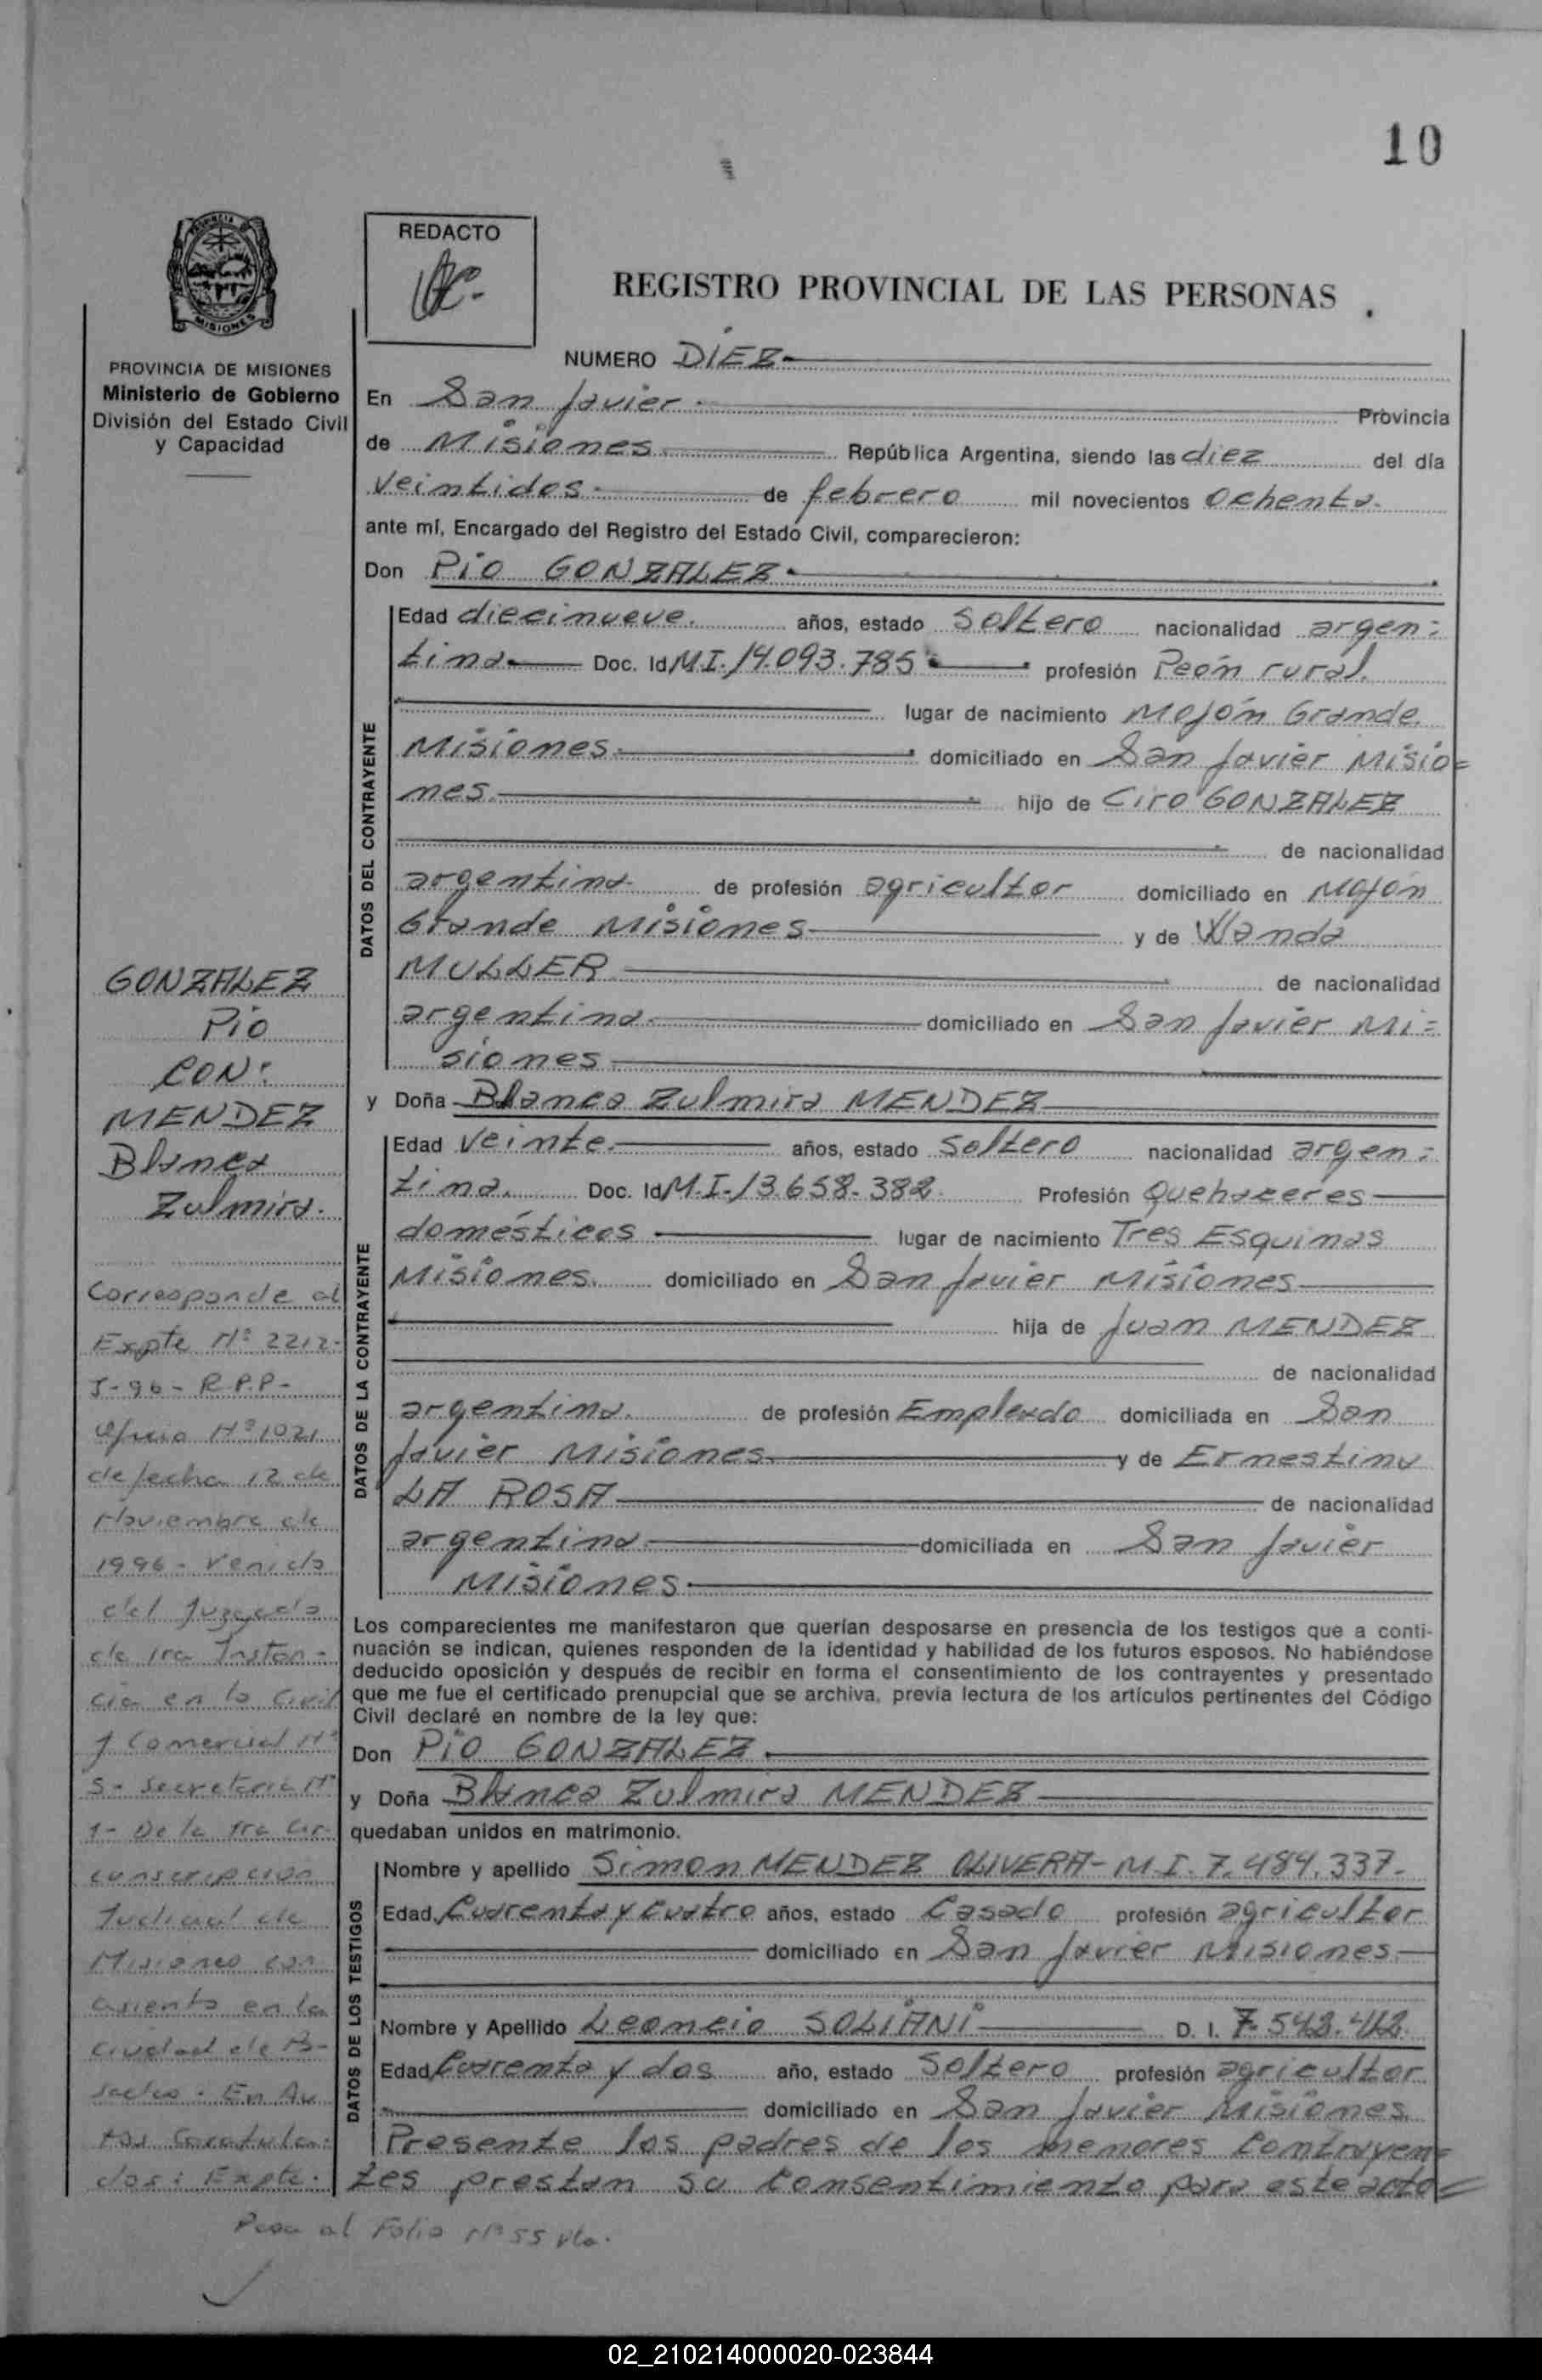 10
REDACTO
REGISTRO PROVINCIAL DE LAS PERSONAS
MISIONES
PROVINCIA DE MISIONES
Ministerio de Gobierno
División del Estado Civil
y Capacidad
NUMERO DIEZ
En San Javier Provincia
de Misiones República Argentina, siendo las diez del día
veintidos de febrero mil novecientos ochenta.
ante mí, Encargado del Registro del Estado Civil, comparecieron:
Don Pio GONZALEZ
DATOS DEL CONTRAYENTE
Edad diecinueve. años, estado Soltero nacionalidad argen=
tina Doc. Id M.I. 14.093.785 profesión Peón rural.
lugar de nacimiento Mojón Grande
Misiones domiciliado en San Javier Misio=
nes. hijo de Ciro GONZALEZ
de nacionalidad
argentina de profesión agricultor domiciliado en Mojón
Grande Misiones y de Wanda
MULLER de nacionalidad
argentina domiciliado en San Javier Mi=
siones
y Doña Blanca Zulmira MENDEZ
DATOS DE LA CONTRAYENTE
Edad veinte. años, estado Soltero nacionalidad argen=
tina. Doc. Id M.I. 13.658.382. Profesión Quehaceres
domésticos lugar de nacimiento Tres Esquinas
Misiones. domiciliado en San Javier Misiones
hija de Juan MENDEZ
de nacionalidad
argentina. de profesión Empleado domiciliada en San
Javier Misiones y de Ernestina
LA ROSA de nacionalidad
argentina domiciliada en San Javier
Misiones
Los comparecientes me manifestaron que querían desposarse en presencia de los testigos que a conti-
nuación se indican, quienes responden de la identidad y habilidad de los futuros esposos. No habiéndose
deducido oposición y después de recibir en forma el consentimiento de los contrayentes y presentado
que me fue el certificado prenupcial que se archiva, previa lectura de los artículos pertinentes del Código
Civil declaré en nombre de la ley que:
Don Pio GONZALEZ
y Doña Blanca Zulmira MENDEZ
quedaban unidos en matrimonio.
DATOS DE LOS TESTIGOS
Nombre y apellido Simon MENDEZ OLIVERA- M.I. 7.484.337.
Edad Cuarenta y cuatro años, estado Casado profesión agricultor
domiciliado en San Javier Misiones
Nombre y Apellido Leoncio SOLIANI D. I. 7.542.412
Edad Cuarenta y dos año, estado Soltero profesión agricultor
domiciliado en San Javier Misiones
Presente los padres de los menores Contrayen=
tes prestan su consentimiento para este acto=
GONZALEZ
Pio
CON:
MENDEZ
Blanca
Zulmira.
Corresponde al
Expte Nº 2212-
J-96- R.P.P-
oficio Nº 1021
de fecha 12 de
Noviembre de
1996- venido
del Juzgado
de 1ra Instan-
cia en lo Civil
y Comercial Nº
5- Secretaria Nº
1- De la 1ra Cir-
cunscripcion
Judicial de
Misiones con
asiento en la
ciudad de Po-
sadas. En Au
tos Caratula-
dos: Expte.
Pasa al Folio Nº 55 vto.
02_210214000020-023844